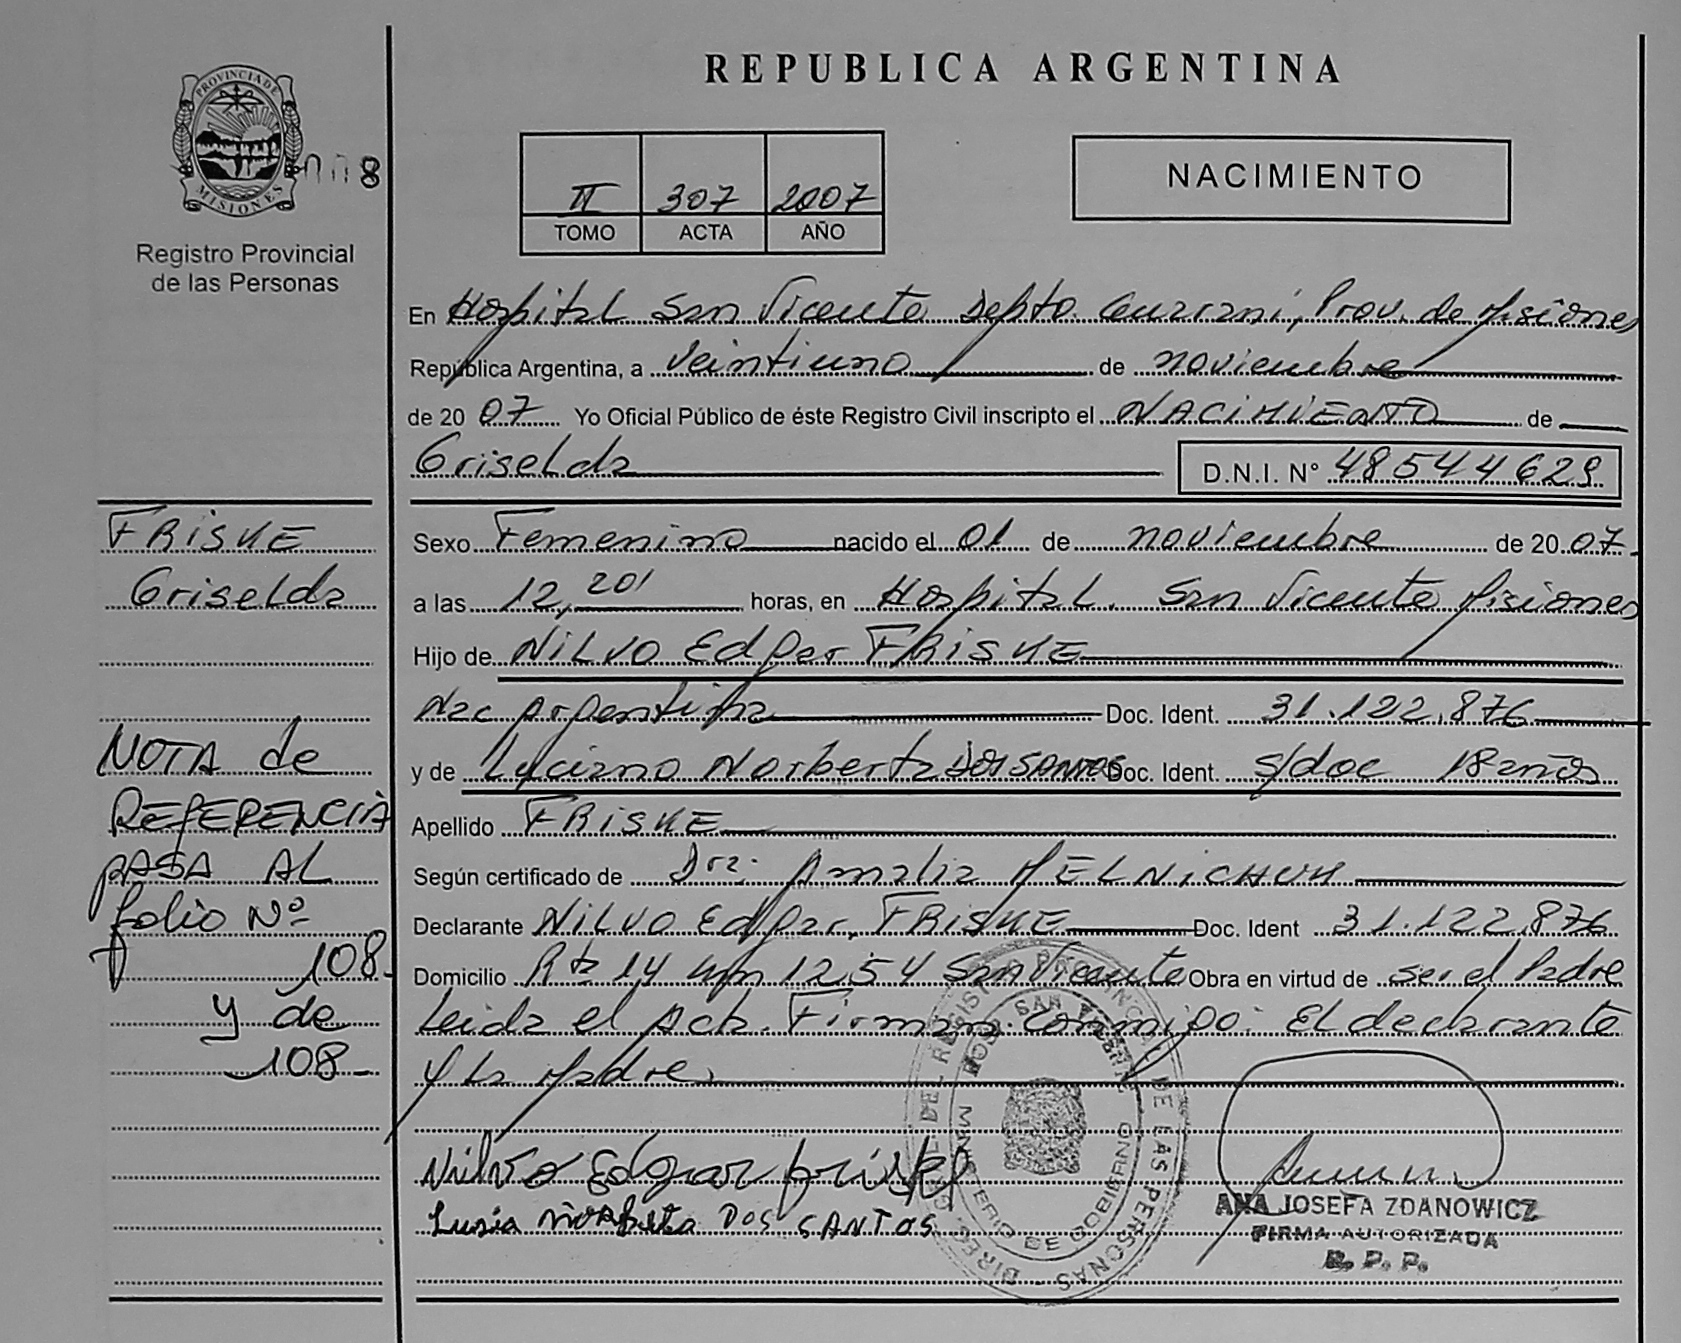 REPUBLICA ARGENTINA
PROVINCIA DE
MISIONES
8
Registro Provincial
de las Personas
II 307 2007
TOMO ACTA AÑO
NACIMIENTO
En Hospital San Vicente Depto. Guarani, Prov. de Misiones
República Argentina, a Veintiuno de noviembre
de 20 07 Yo Oficial Público de éste Registro Civil inscripto el NACIMIENTO de
Griselda D.N.I. Nº 48544629
FRISKE
Griselda
Sexo Femenino nacido el 01 de noviembre de 20 07
a las 12,20' horas, en Hospital. San Vicente Misiones
Hijo de NILVO Edgar FRISKE
Nac Argentina Doc. Ident. 31.122.876
y de Luciana Norberta DOS SANTOS Doc. Ident. s/doc 18 años
Apellido FRISKE
Según certificado de Dra: Amalia MELNICHUK
Declarante NILVO Edgar, FRISKE Doc. Ident 31.122.876
Domicilio Rta 14 Km 1254 San Vicente Obra en virtud de ser el Padre
Leida el Acta. Firman conmigo: El declarante
y la Madre
NOTA de
REFERENCIA
PASA AL
folio Nº
108
y de
108
Nilvo Edgar Friske
Norberta DOS SANTOS
DIREC. GRAL. DEL REGISTRO PROVINCIAL DE LAS PERSONAS
HOSP. SAN VICENTE
MINISTERIO DE GOBIERNO
ANA JOSEFA ZDANOWICZ
FIRMA AUTORIZADA
R. P. P.